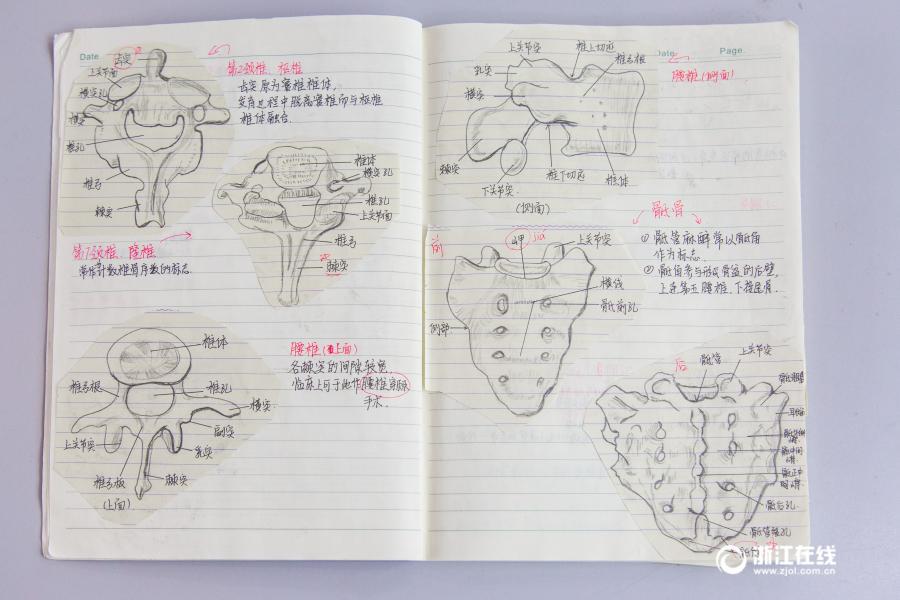 Date
齿突
上关节面
横突孔
横突
椎孔
椎弓
棘突
第2颈椎、枢椎
齿突原为寰椎椎体,
发育过程中脱离寰椎而与枢椎
椎体融合.
椎体
横突孔
椎孔
上关节面
椎弓
棘突
第7颈椎、隆椎
常作计数椎骨序数的标志.
椎体
椎弓根
椎孔
横突
上关节突
副突
乳突
椎弓板
棘突
(上面)
腰椎(上面)
各棘突的间隙较宽
临床上可于此作腰椎穿刺
手术.
Date
Page.
上关节突
椎上切迹
椎弓根
乳突
横突
棘突
下关节突
椎下切迹
椎体
(侧面)
腰椎(侧面)
骶骨
① 骶管麻醉常以骶角
作为标志.
② 骶骨参与形成骨盆的后壁,
上连第五腰椎、下接尾骨.
前
岬
jiǎ
上关节突
横线
骶前孔
侧部
后
骶管
上关节突
骶粗隆
耳状面
骶中间
嵴
骶正中
嵴
骶后孔
骶管裂孔
浙江在线
www.zjol.com.cn